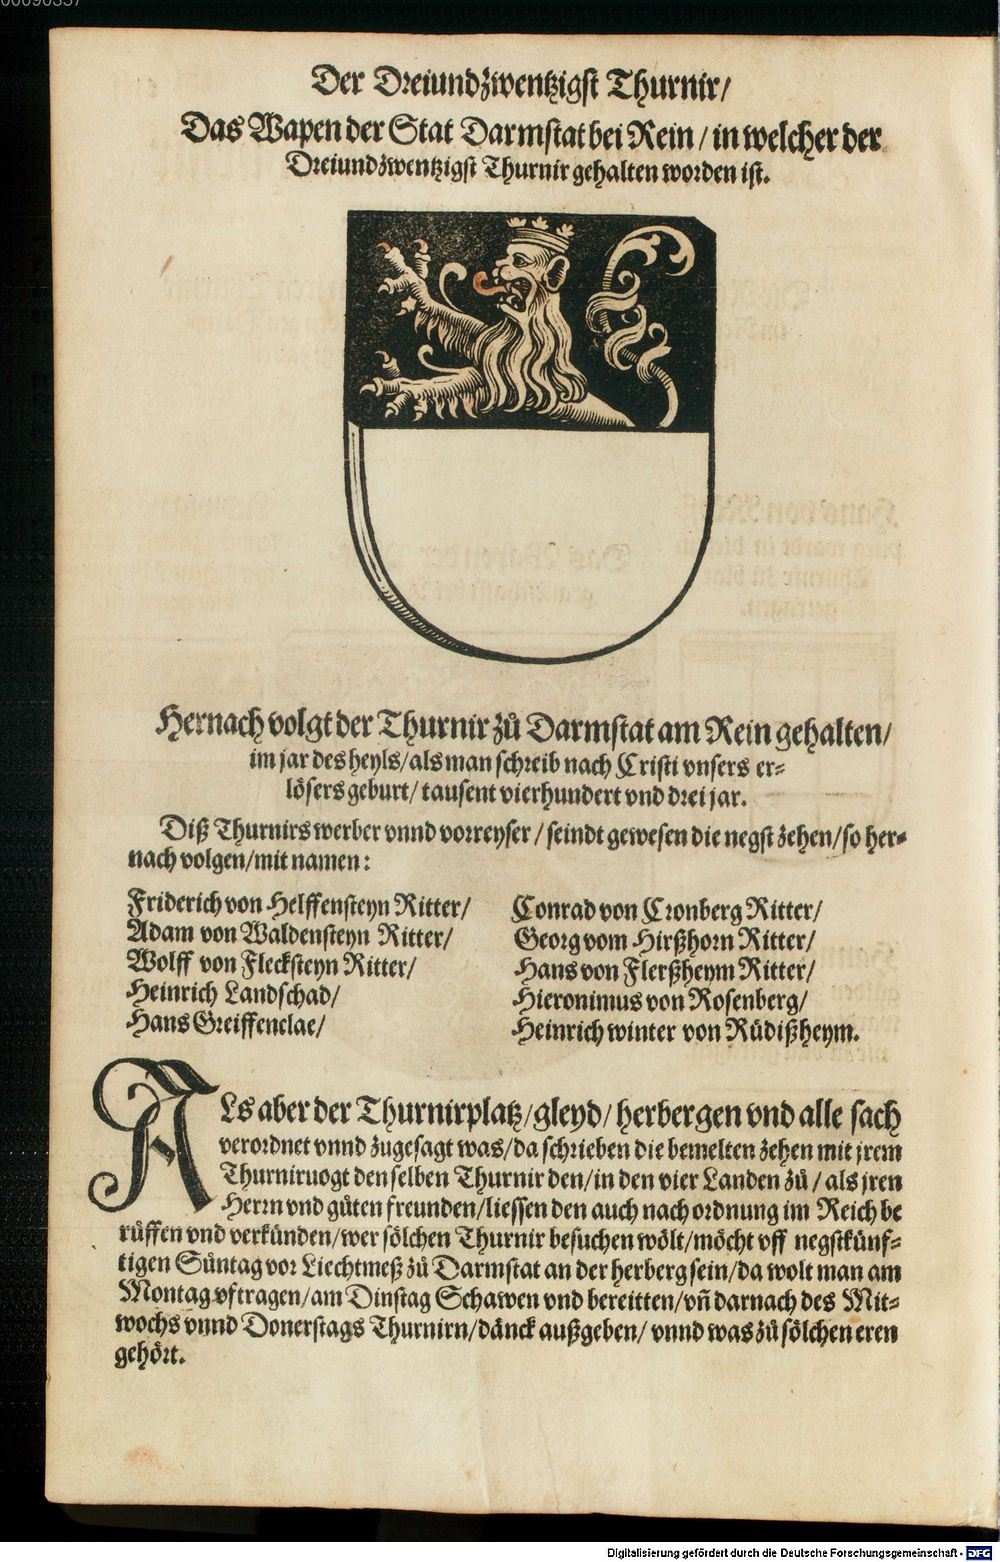 00090357
Der Dreiundzwentzigst Thurnir/
Das Wapen der Stat Darmstat bei Rein / in welcher der
Dreiundzwentzigst Thurnir gehalten worden ist.
Hernach volgt der Thurnir zů Darmstat am Rein gehalten/
im jar des heyls/als man schreib nach Cristi vnsers er-
lösers geburt/ tausent vierhundert vnd drei jar.
Diß Thurnirs werber vnnd vorreyser / seindt gewesen die negst zehen/so her-
nach volgen/mit namen:
Friderich von Helffensteyn Ritter/
Adam von Waldensteyn Ritter/
Wolff von Flecksteyn Ritter/
Heinrich Landschad/
Hans Greiffenclae/
Conrad von Cronberg Ritter/
Georg vom Hirßhorn Ritter/
Hans von Flerßheym Ritter/
Hieronimus von Rosenberg/
Heinrich winter von Rüdißheym.
ALs aber der Thurnirplatz/gleyd/ herbergen vnd alle sach
verordnet vnnd zugesagt was/da schrieben die bemelten zehen mit jrem
Thurniruogt den selben Thurnir den/in den vier Landen zů / als jren
Herrn vnd gůten freunden/liessen den auch nach ordnung im Reich be
rüffen vnd verkünden/wer sölchen Thurnir besuchen wölt/möcht vff negstkünf-
tigen Sůntag vor Liechtmeß zů Darmstat an der herberg sein/da wolt man am
Montag vftragen/am Dinstag Schawen vnd bereitten/vñ darnach des Mit-
wochs vnnd Donerstags Thurnirn/dänck außgeben/ vnnd was zů sölchen eren
gehört.
Digitalisierung gefördert durch die Deutsche Forschungsgemeinschaft - DFG